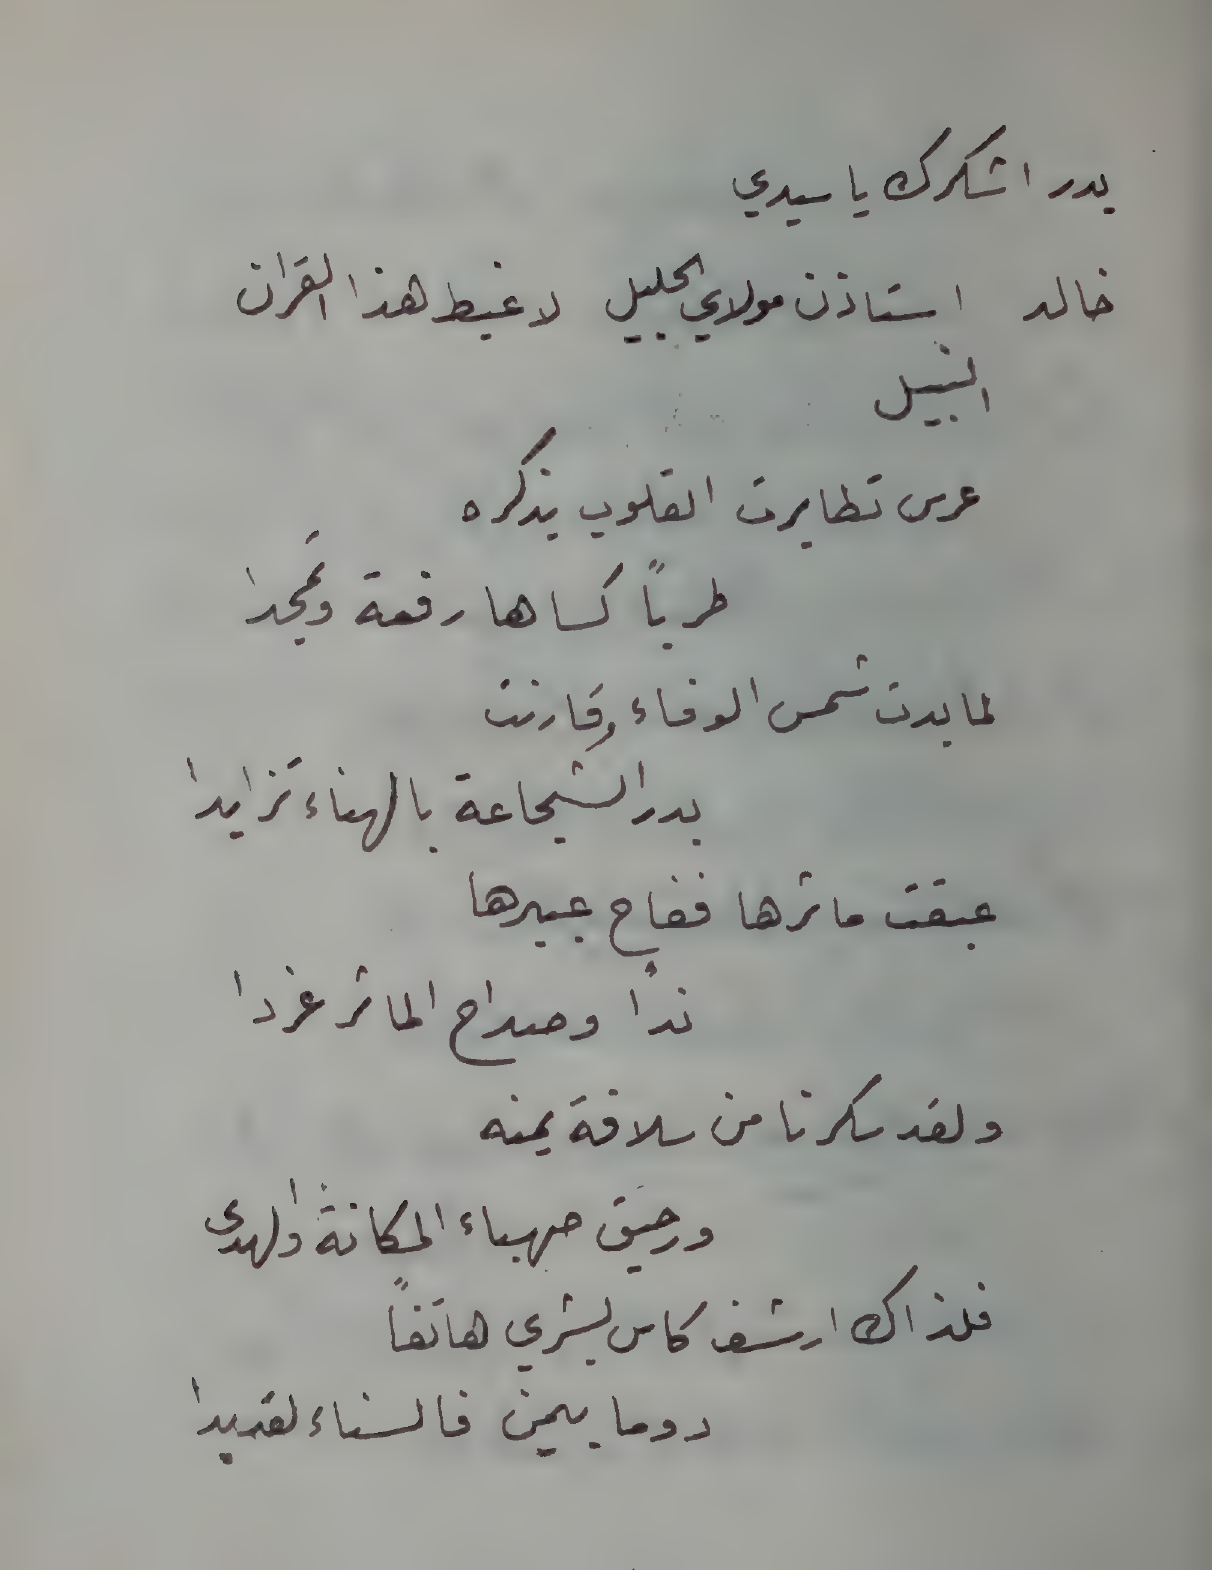 بدر اشكرك يا سيدي
خالد استاذن مولاي الجليل لاغبط هذا القران
النبيل
عرس تطايرت القلوب بذكره
طرباً كساها رفعة وتمجدا
لما بدت شمس الوفاء وقارنت
بدر الشجاعة بالهناء تزايدا
عبقت ماثرها ففاح عبيرها
نداً وصداح الماثر غردا
ولقد سكرنا من سلافة يمنه
ورحيق صهباء المكانة والهدى
فلذاك ارشف كاس بشري هاتفاً
دوما بيمن فالسناء لقد بدا